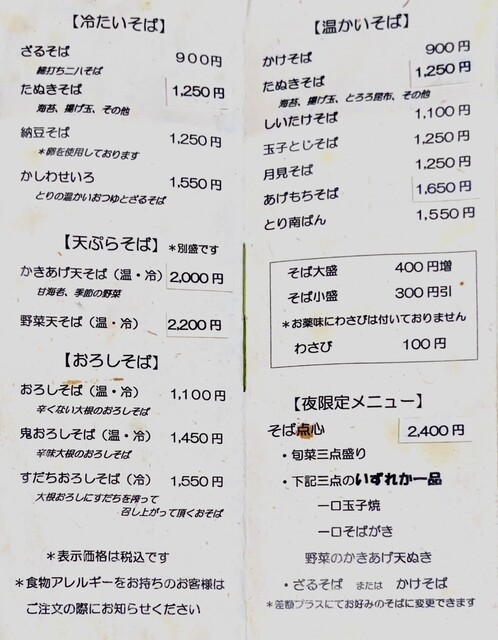 【冷たいそば】
ざるそば 900円
細打ち二八そば
たぬきそば 1,250円
海苔、揚げ玉、その他
納豆そば 1,250円
＊卵を使用しております
かしわせいろ 1,550円
とりの温かいおつゆとざるそば
【天ぷらそば】＊別盛です
かきあげ天そば（温・冷） 2,000円
甘海老、季節の野菜
野菜天そば（温・冷） 2,200円
【おろしそば】
おろしそば（温・冷） 1,100円
辛くない大根のおろしそば
鬼おろしそば（温・冷） 1,450円
辛味大根のおろしそば
すだちおろしそば（冷） 1,550円
大根おろしにすだちを搾って
召し上がって頂くおそば
＊表示価格は税込です
＊食物アレルギーをお持ちのお客様は
ご注文の際にお知らせください
【温かいそば】
かけそば 900円
たぬきそば 1,250円
海苔、揚げ玉、とろろ昆布、その他
しいたけそば 1,100円
玉子とじそば 1,250円
月見そば 1,250円
あげもちそば 1,650円
とり南ばん 1,550円
そば大盛 400円増
そば小盛 300円引
＊お薬味にわさびは付いておりません
わさび 100円
【夜限定メニュー】
そば点心 2,400円
・旬菜三点盛り
・下記三点のいずれか一品
一口玉子焼
一口そばがき
野菜のかきあげ天ぬき
・ざるそば または かけそば
＊差額プラスにてお好みのそばに変更できます